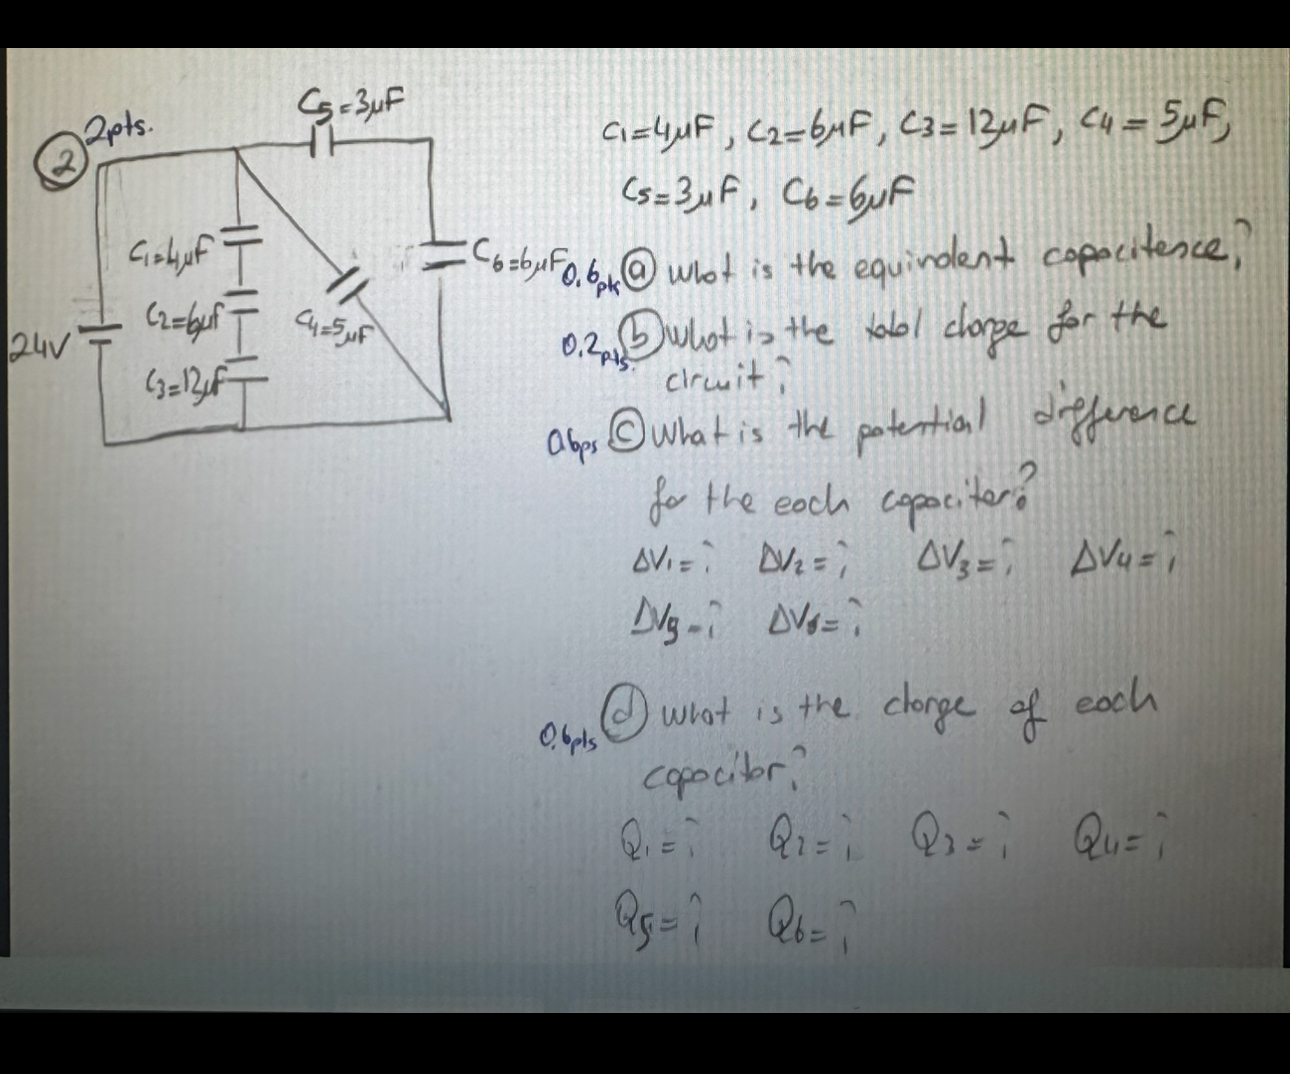 2 2pts.
C5=3μF
C1=4μF
C2=6μF
C3=12μF
C4=5μF
C6=6μF
24V
C1=4μF, C2=6μF, C3=12μF, C4=5μF,
C5=3μF, C6=6μF
0.6pts a what is the equivalent capacitence?
0.2pts. b What is the total charge for the
circuit?
0.6ps c What is the potential difference
for the each capaciter?
ΔV1=? ΔV2=? ΔV3=? ΔV4=?
ΔV5=? ΔV6=?
0.6pts d what is the charge of each
capacitor?
Q1=? Q2=? Q3=? Q4=?
Q5=? Q6=?